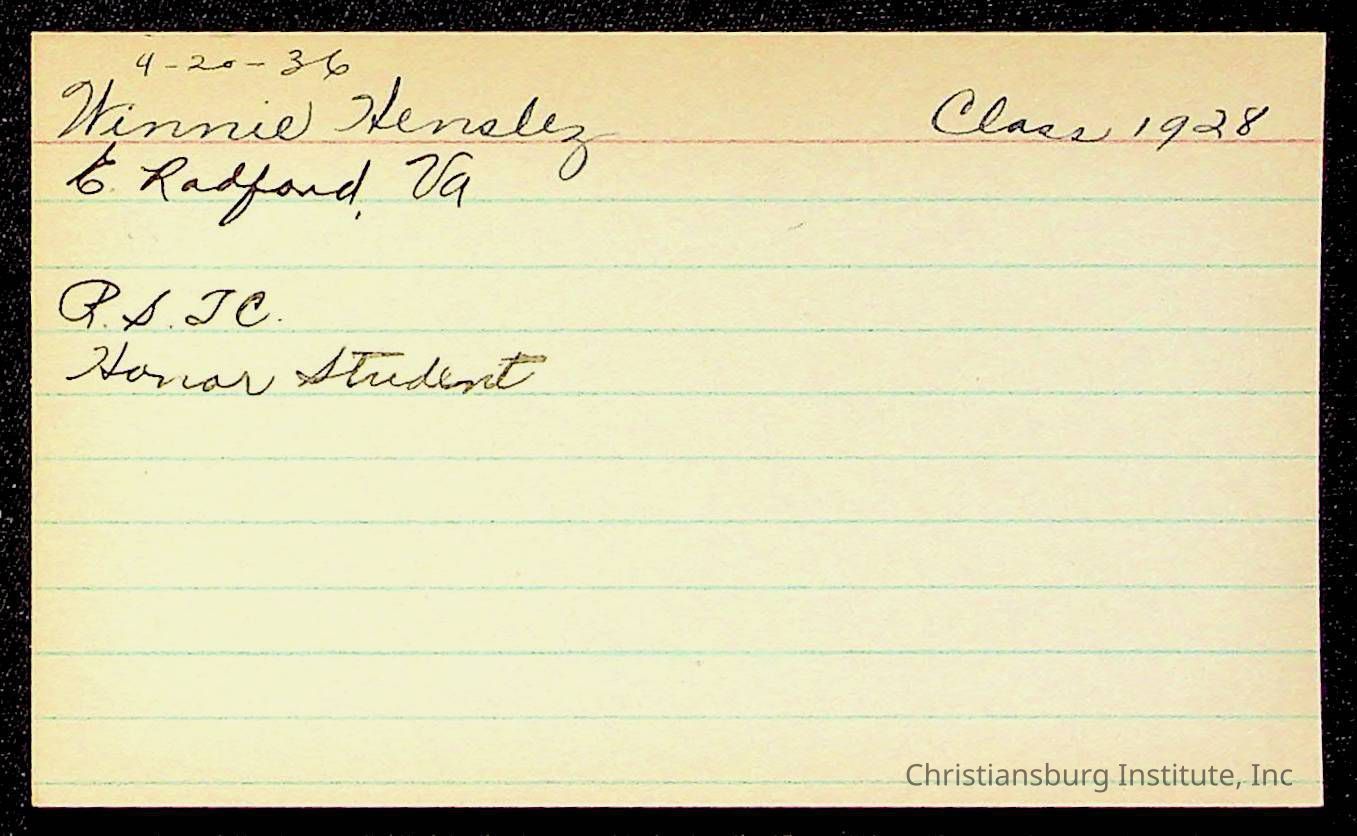 4-20-36
Winnie Hensley Class 1928
E. Radford, Va
R.S.TC.
Honor Student
Christiansburg Institute, Inc